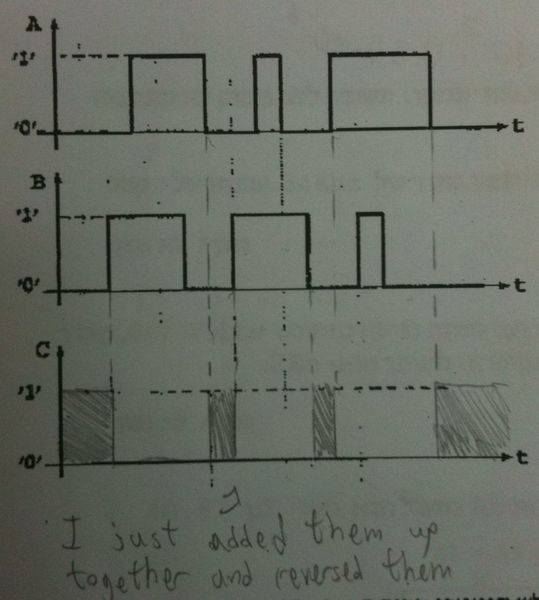 A
'1'
'0'
t
B
'1'
'0'
t
C
'1'
'0'
t
I just added them up
together and reversed them